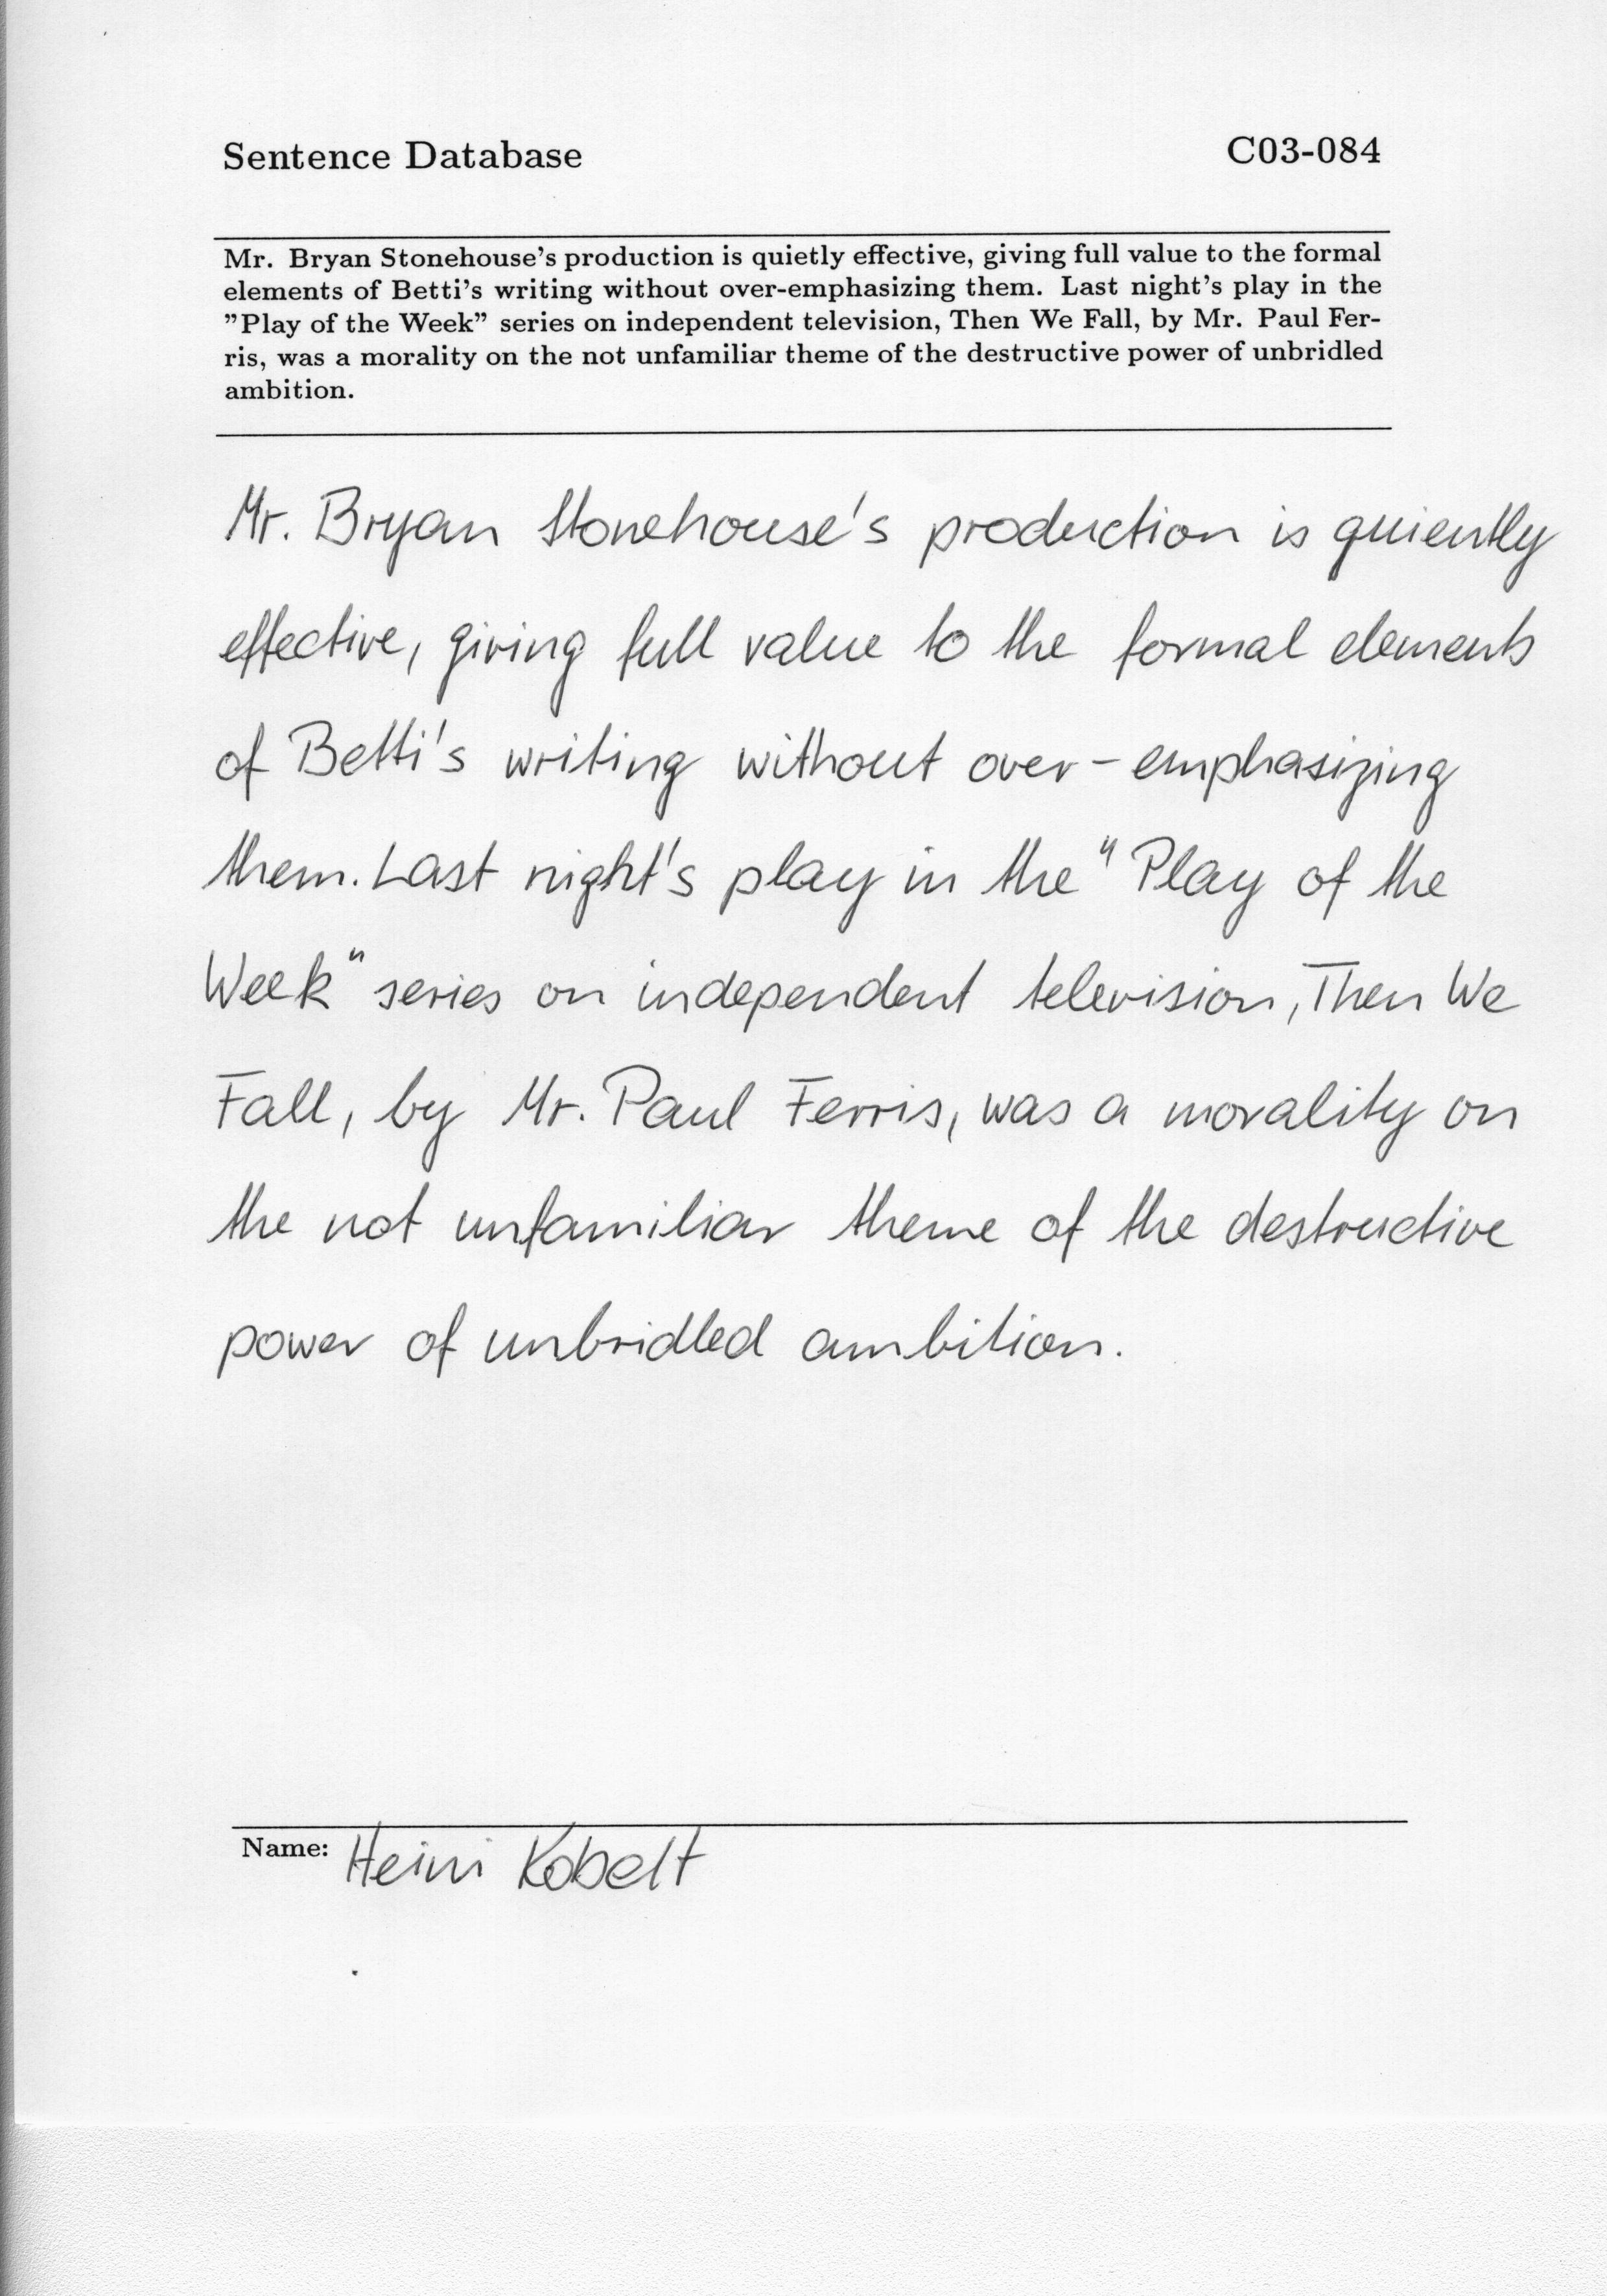 Sentence Database
C03-084
Mr. Bryan Stonehouse's production is quietly effective, giving full value to the formal
elements of Betti's writing without over-emphasizing them. Last night's play in the
"Play of the Week" series on independent television, Then We Fall, by Mr. Paul Fer-
ris, was a morality on the not unfamiliar theme of the destructive power of unbridled
ambition.
Mr. Bryan Stonehouse's production is quiently
effective, giving full value to the formal elements
of Betti's writing without over-emphasizing
them. Last night's play in the "Play of the
Week" series on independent television, Then We
Fall, by Mr. Paul Ferris, was a morality on
the not unfamiliar theme of the destructive
power of unbridled ambition.
Name: Heini Kobelt